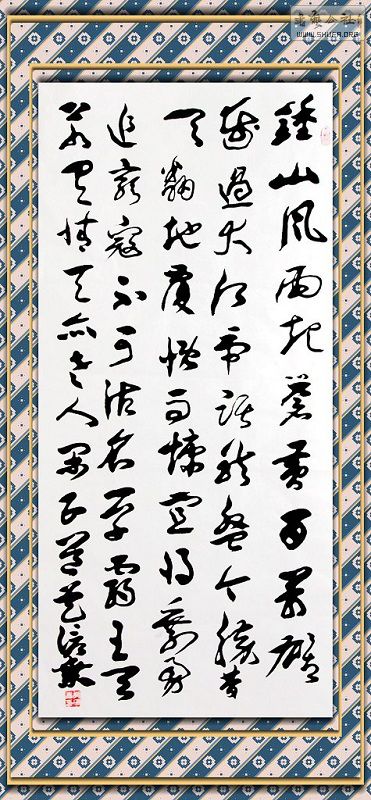 鍾山风雨起蒼黄百万雄
師過大江虎踞龍盤今勝昔
天翻地覆慨而慷宜将剩勇
追窮寇不可沽名学霸王天
若有情天亦老人間正道是滄桑
WWW.SHUFA.ORG